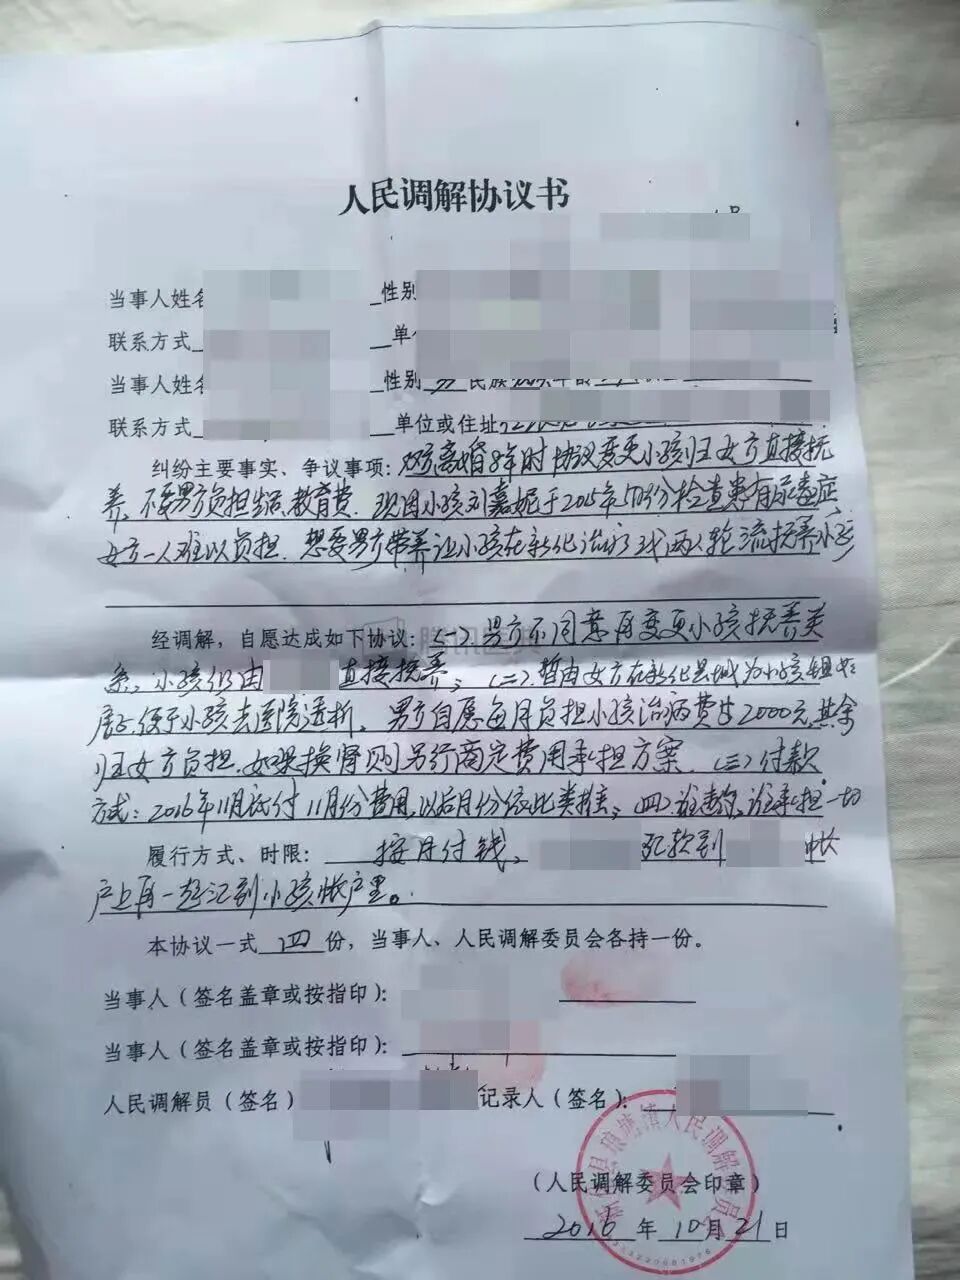 人民调解协议书
当事人姓名
性别
联系方式
单
当事人姓名
性别 男 民族
联系方式
单位或住址
纠纷主要事实、争议事项：双方离婚8年时协议变更小孩归女方直接抚
养，不要男方负担生活、教育费，现因小孩刘嘉妮于2015年5月份检查患有尿毒症，
女方一人难以负担．想要男方带养让小孩在新化治疗或两人轮流抚养小孩
经调解，自愿达成如下协议：（一）、男方不同意再变更小孩抚养关
系，小孩仍由 直接抚养；（二）、暂由女方在新化县城为小孩租好
房子，便于小孩去医院透析，男方自愿每月负担小孩治病费生2000元，其余
归女方负担，如果换肾则另行商定费用承担方案，（三）付款
方式：2016年11月底付11月份费用，以后月份依此类推；（四）、谁违约，谁承担一切
履行方式、时限：按月付钱，
汇款到 帐
户上再一起汇到小孩帐户里。
本协议一式 四 份，当事人、人民调解委员会各持一份。
当事人（签名盖章或按指印）：
当事人（签名盖章或按指印）：
人民调解员（签名）
记录人（签名）：
新化县琅塘镇人民调解委员会
（人民调解委员会印章）
2016 年 10 月 21 日